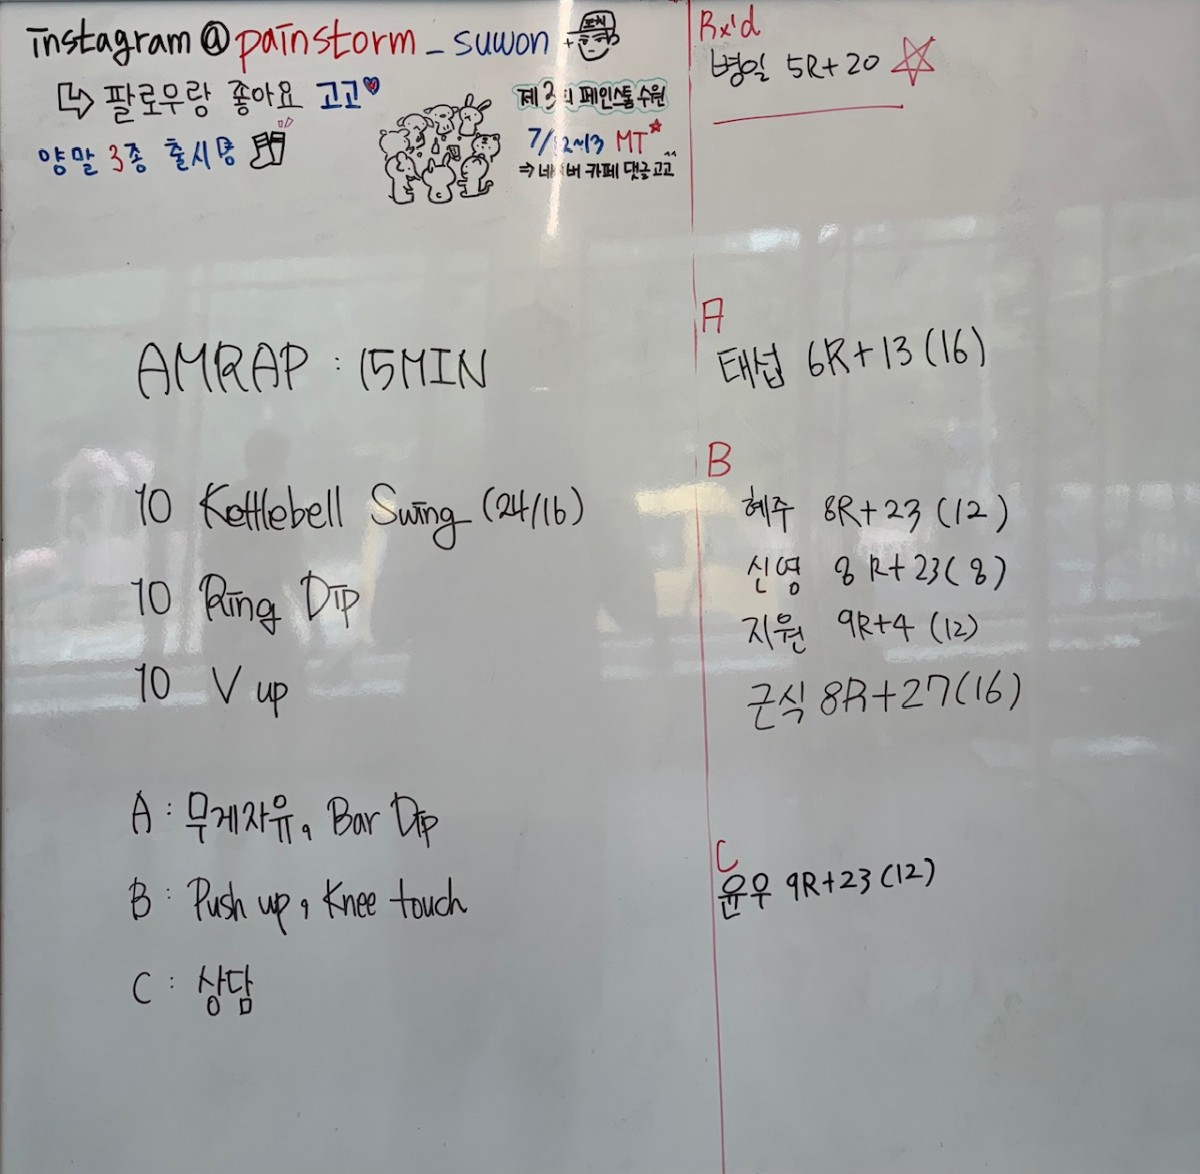 instagram@painstorm_suwon
팔로우랑 좋아요 고고
양말 3종 출시됭
코치
제 3회 페인스톰 수원
7/12~13 MT
⇒ 네이버 카페 댓글 고고^^
AMRAP : 15MIN
10 Kettlebell Swing (24/16)
10 Ring Dip
10 V up
A : 무게자유, Bar Dip
B : Push up, Knee touch
C : 상담
Rx'd
병일 5R+20
A
태섭 6R+13 (16)
B
혜주 8R+23 (12)
신영 8R+23(8)
지원 9R+4 (12)
근식 8R+27(16)
C
윤우 9R+23 (12)